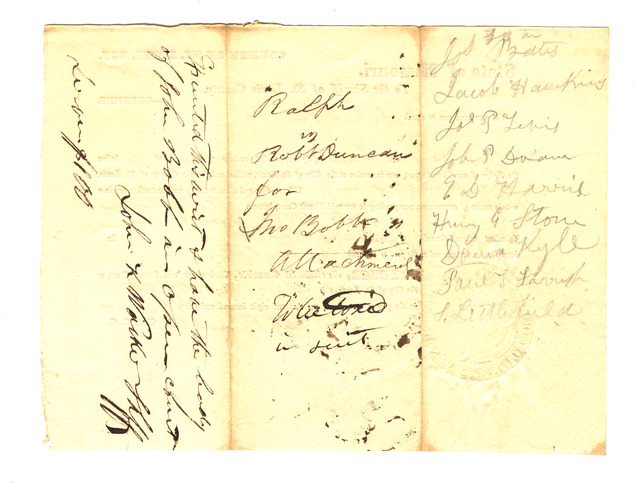 Executed this writ & have the body
of John Bobb in open court
John K Walker Shff
Serving $1.00
Ralph
vs
Robt Duncan
for
Jno Bobb
Attachment
To be taxed
in suit
Jos Bates
Jacob Hawkins
Jos P Lewis
Job P Doane
E D Harris
Henry G Stone
David Kyle
Paul T.
S. Littlefield